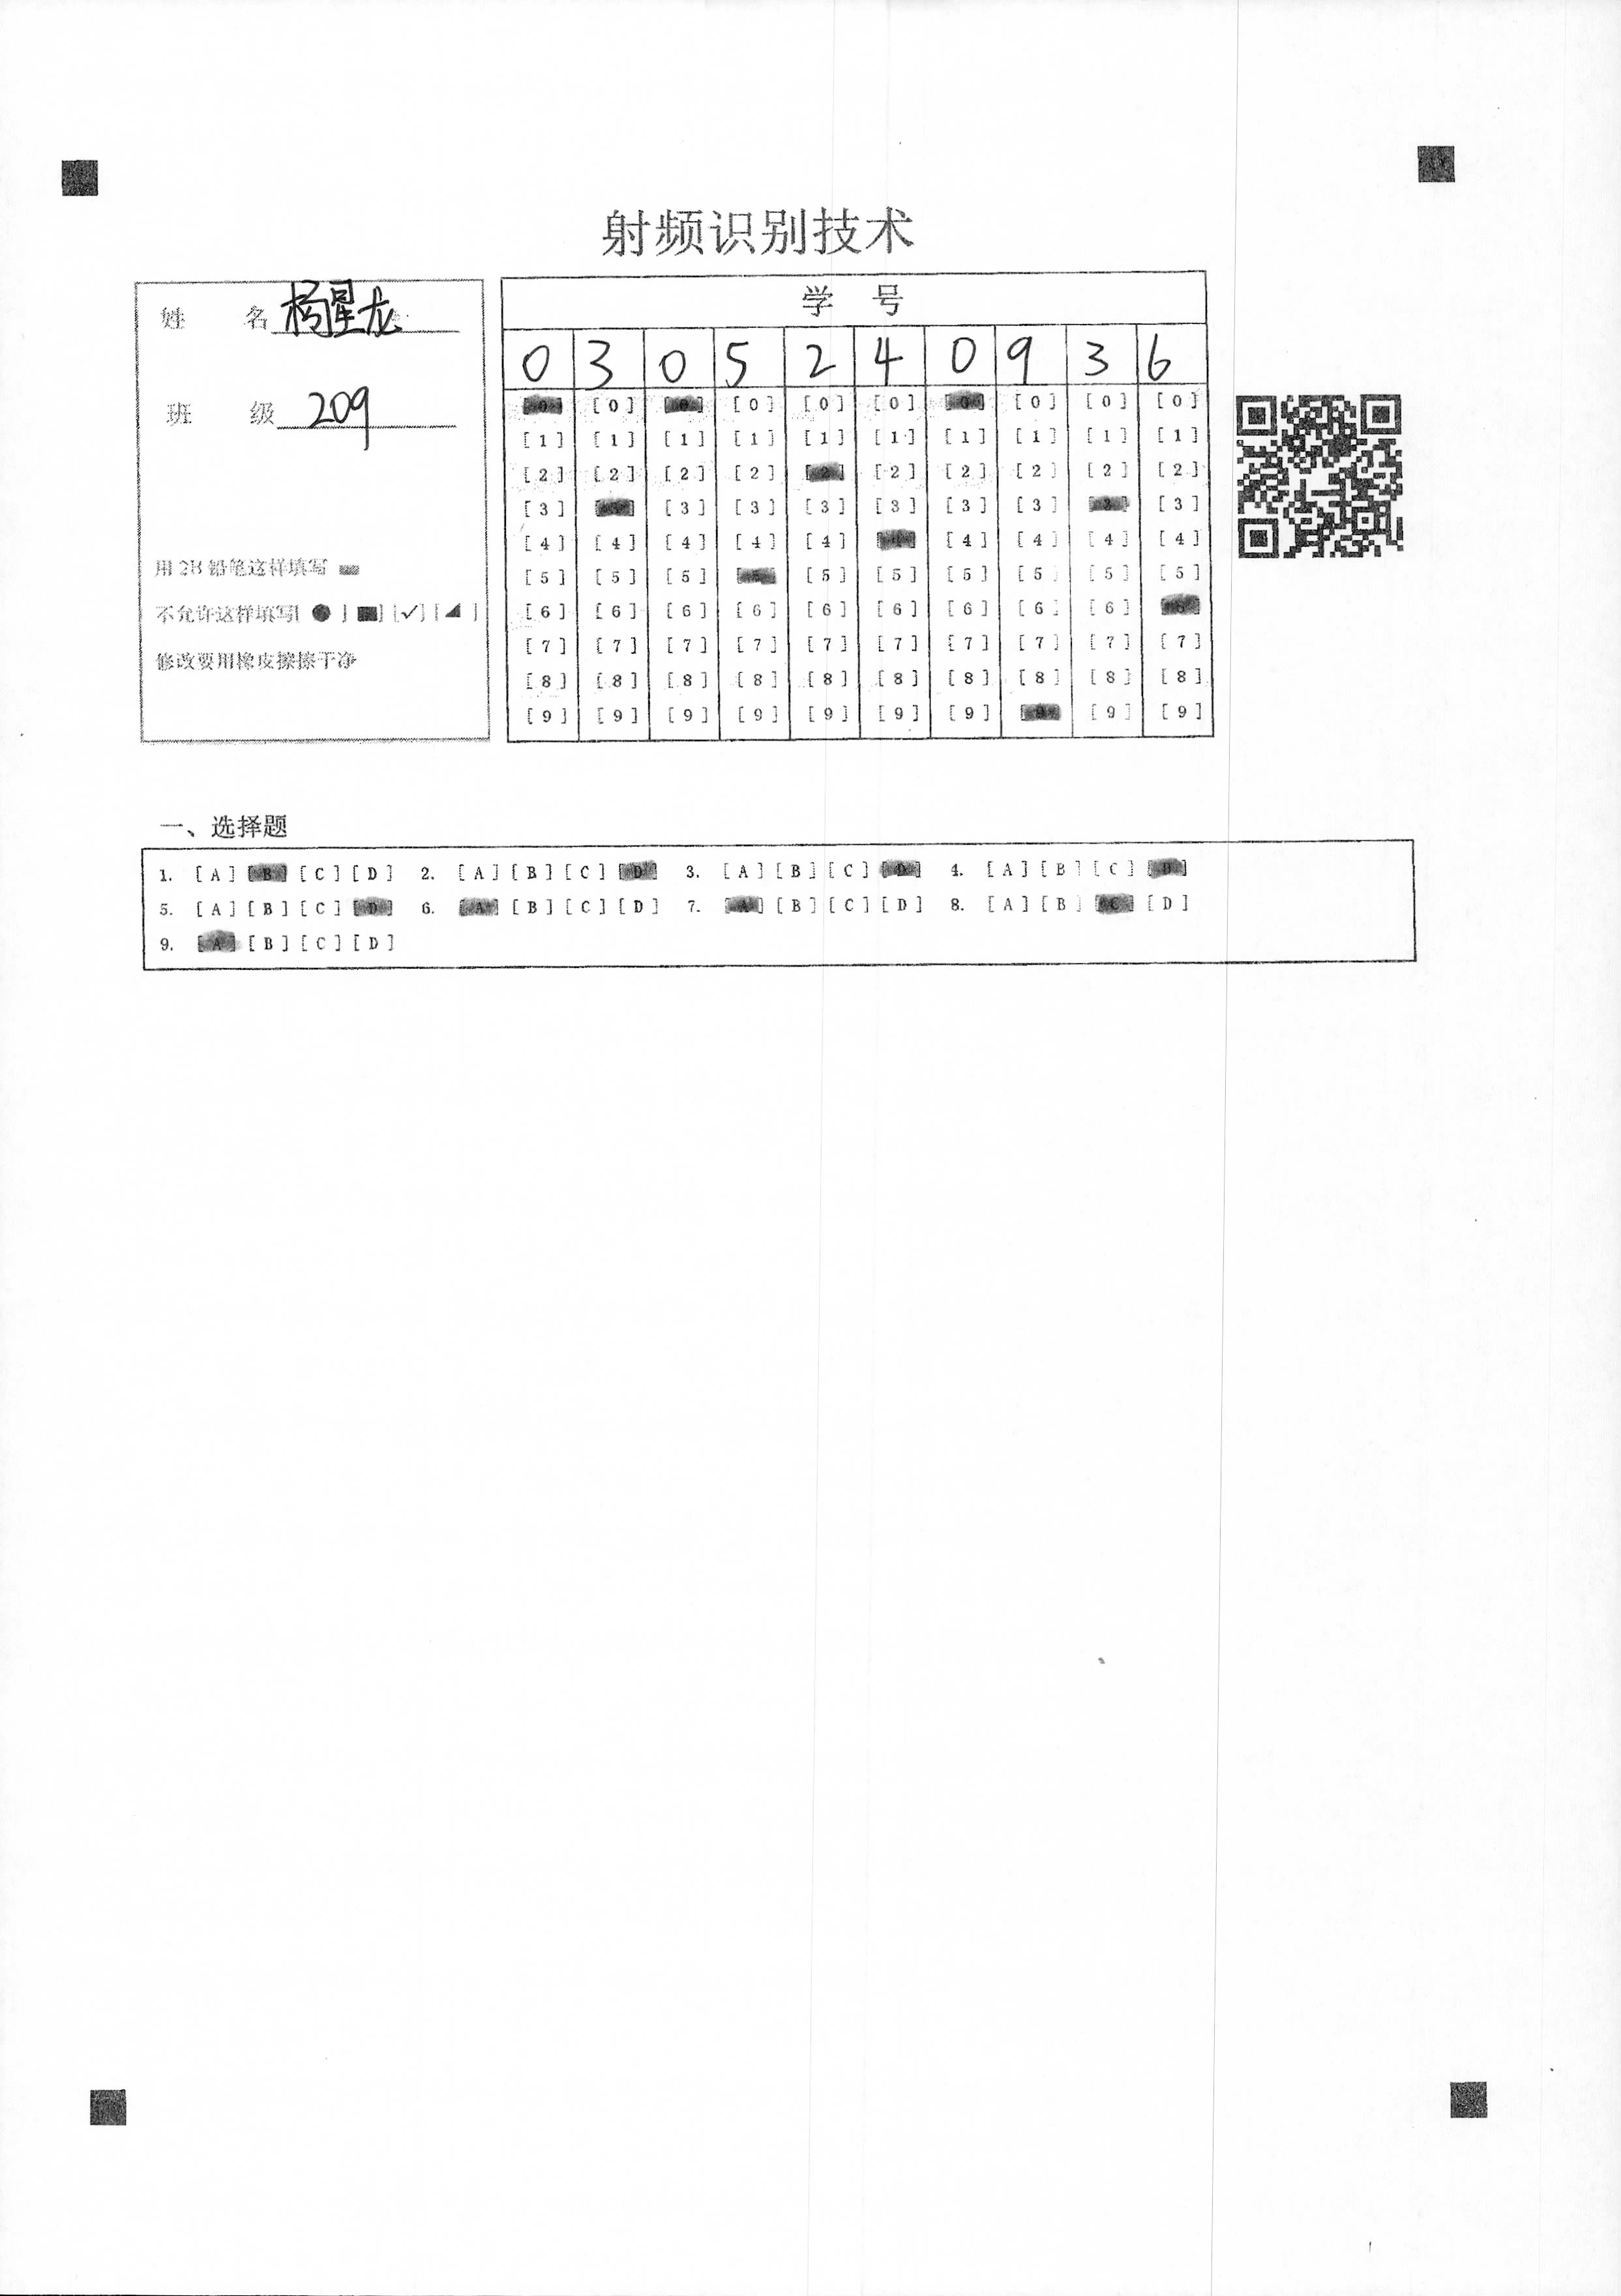 射频识别技术
姓 名 杨星龙
班 级 209
用 2B 铅笔这样填写
不允许这样填写[ ● ] [■] [✓] [◢ ]
修改要用橡皮擦擦干净
学 号
0 3 0 5 2 4 0 9 3 6
[0] [0] [0] [0] [0] [0] [0] [0] [0] [0]
[1] [1] [1] [1] [1] [1] [1] [1] [1] [1]
[2] [2] [2] [2] [2] [2] [2] [2] [2] [2]
[3] [3] [3] [3] [3] [3] [3] [3] [3] [3]
[4] [4] [4] [4] [4] [4] [4] [4] [4] [4]
[5] [5] [5] [5] [5] [5] [5] [5] [5] [5]
[6] [6] [6] [6] [6] [6] [6] [6] [6] [6]
[7] [7] [7] [7] [7] [7] [7] [7] [7] [7]
[8] [8] [8] [8] [8] [8] [8] [8] [8] [8]
[9] [9] [9] [9] [9] [9] [9] [9] [9] [9]
一、选择题
1. [A] [B] [C] [D] 2. [A] [B] [C] [D] 3. [A] [B] [C] [D] 4. [A] [B] [C] [D]
5. [A] [B] [C] [D] 6. [A] [B] [C] [D] 7. [A] [B] [C] [D] 8. [A] [B] [C] [D]
9. [A] [B] [C] [D]